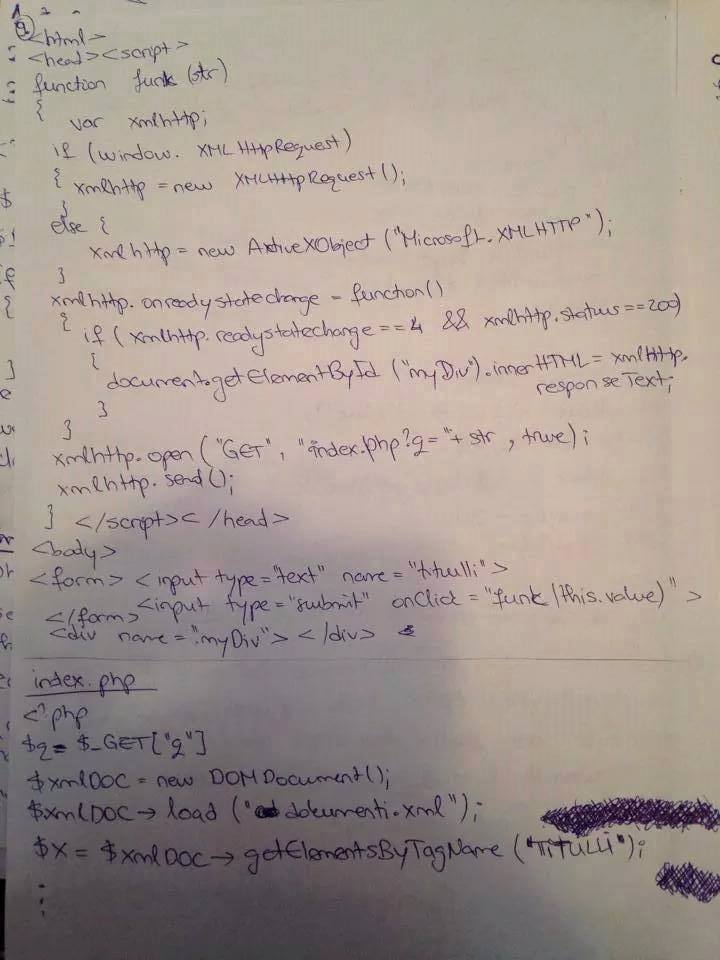 <html>
<head><script>
function funk (str)
{
var xmlhttp;
if (window. XMLHttpRequest)
{ xmlhttp = new XMLHttpRequest();
}
else {
xmlhttp = new ActiveXObject ("Microsoft.XMLHTTP");
}
xmlhttp. onreadystatechange = function()
{ if ( xmlhttp. readystatechange == 4 && xmlhttp.status == 200)
{
document.getElementById ("myDiv").innerHTML = xmlhttp.
responseText;
}
}
xmlhttp. open ("GET", "index.php?q=" + str , true);
xmlhttp. send();
} </script></head>
<body>
<form> <input type="text" name="titulli">
<input type="submit" onClick = "funk(this.value)" >
</form>
<div name = "myDiv"> </div>
index.php
<?php
$q = $_GET["q"]
$xmlDOC = new DOMDocument();
$xmlDOC → load ("dokumenti.xml");
$x = $xmlDOC → getElementsByTagName ("TITULLI");